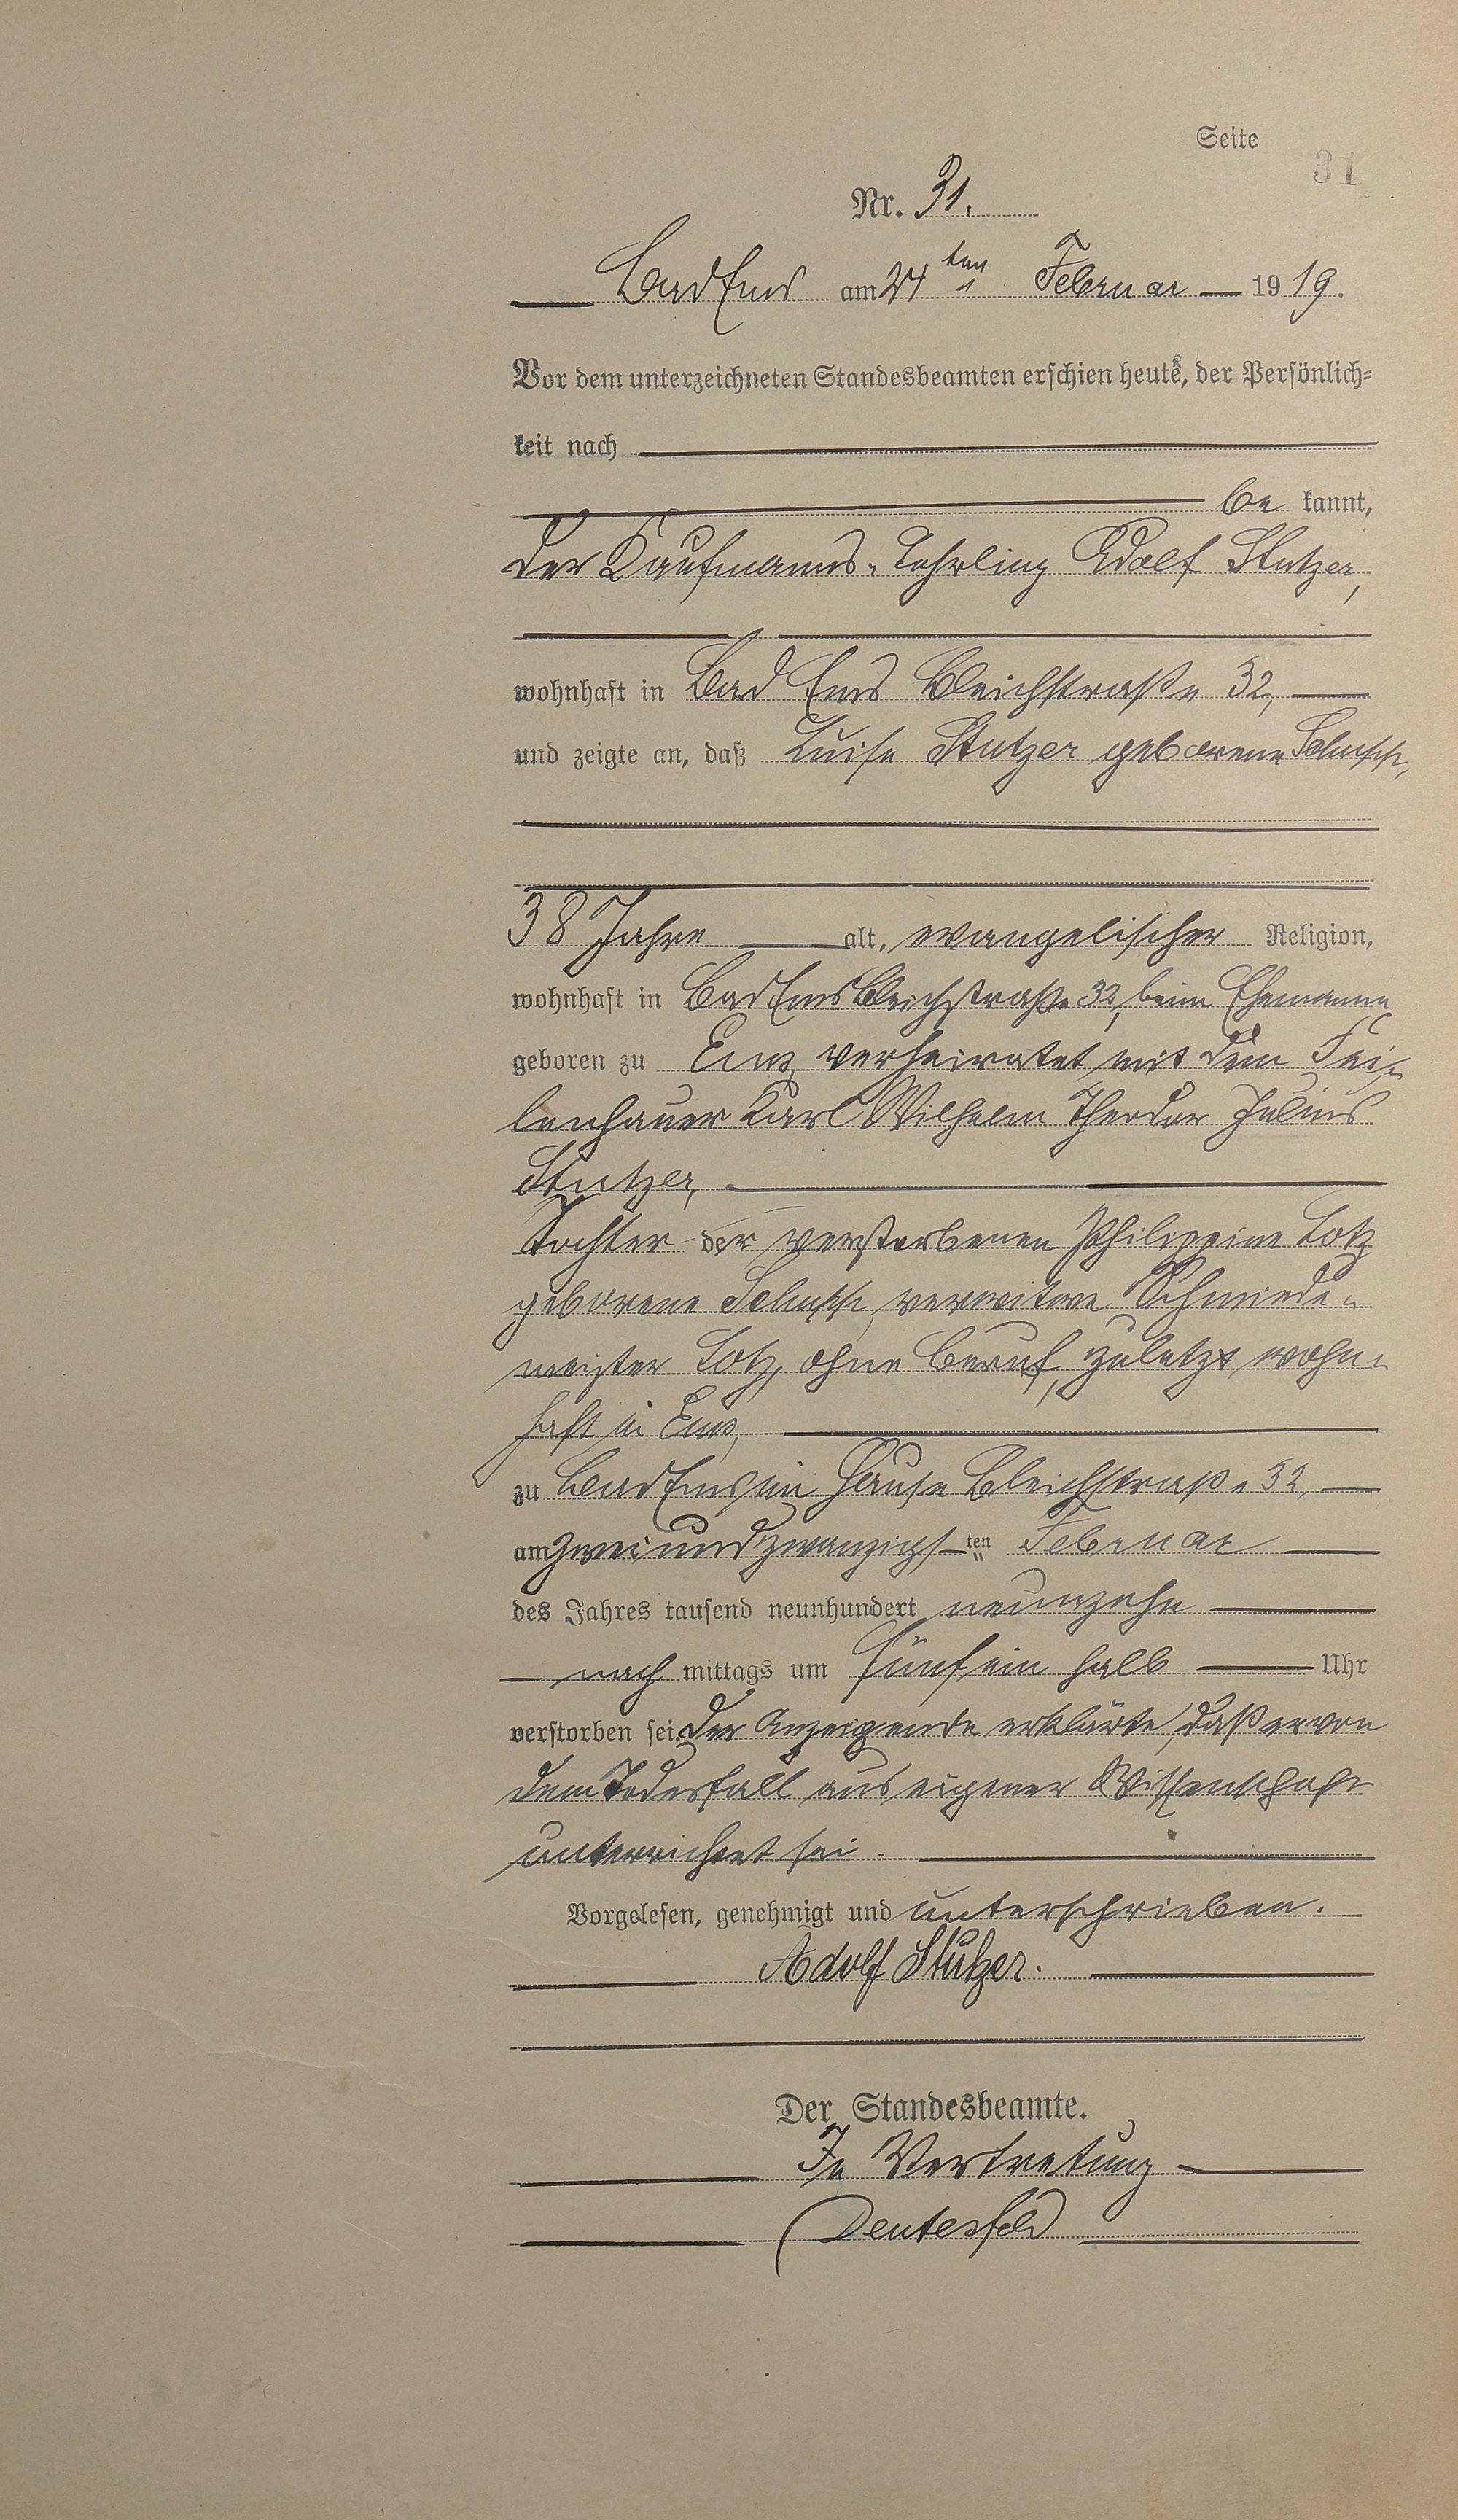 Seite
31
Nr. 31.
Bad Ems am 24ten Februar 1919.
Vor dem unterzeichneten Standesbeamten erschien heute, der Persönlich-
keit nach
be kannt,
der Kaufmanns-Lehrling Adolf Stutzer,
wohnhaft in Bad Ems Bleichstraße 32,
und zeigte an, daß Luise Stutzer geborene Schupp,
38 Jahre alt, evangelischer Religion,
wohnhaft in Bad Ems Bleichstraße 32, beim Ehemanne
geboren zu Ems, verheiratet mit dem Fei-
lenhauer Karl Wilhelm Theodor Julius
Stutzer,
Tochter der verstorbenen Philippine Lotz
geborene Schupp, verwitwe Schmiede-
meister Lotz, ohne Beruf, zuletzt wohn-
haft in Ems,
zu Bad Ems im Hause Bleichstraße 32,
am zweiundzwanzigsten Februar
des Jahres tausend neunhundert neunzehn
nach mittags um fünf ein halb Uhr
verstorben sei. Der Anzeigende erklärte, daß er von
dem Todesfall aus eigener Wissenschaft
unterrichtet sei.
Vorgelesen, genehmigt und unterschrieben.
Adolf Stutzer.
Der Standesbeamte.
In Vertretung